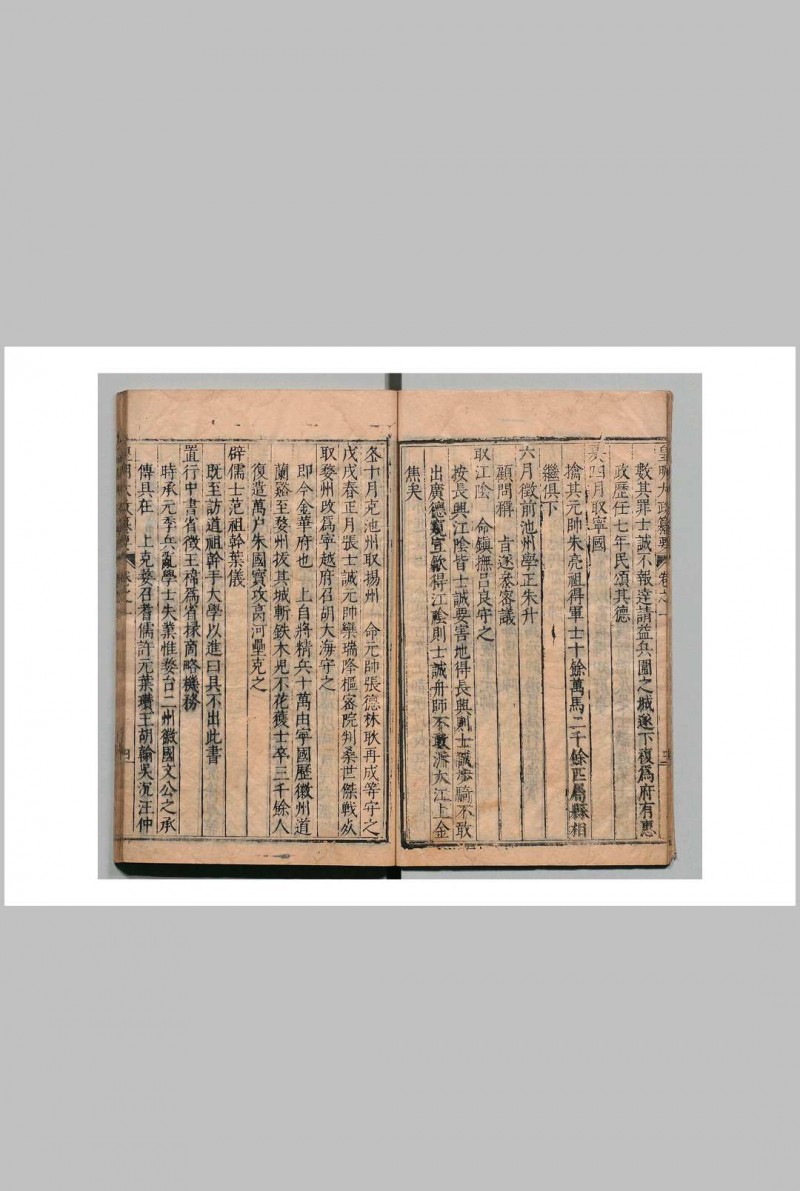 皇明大政纂要 卷之一
數其罪士誠不報達請益兵圍之城遂下復為府有惠
政歷任七年民頌其德
夏四月取寧國
擒其元帥朱亮祖得軍士十餘萬馬二千餘匹屬縣相
繼俱下
六月徵前池州學正朱升
顧問稱 旨遂叅密議
取江陰 命鎮撫吕良守之
按長興江陰皆士誠要害地得長興則士誠步騎不敢
出廣德窺宣歙得江陰則士誠舟師不敢泝大江上金
焦矣
冬十月克池州取揚州 命元帥張德林耿再成等守之
戊戌春正月張士誠元帥欒瑞降樞密院判桑世傑戰死
取婺州改為寧越府召胡大海守之
即今金華府也 上自將精兵十萬由寧國歷徽州道
蘭谿至婺州拔其城斬鉄木児不花獲士卒三千餘人
復造萬户朱國寶攻高河壘克之
辟儒士范祖幹葉儀
既至訪道祖幹手大學以進曰具不出此書
置行中書省徵王禕為省掾商略機務
時承元季兵亂學士失業惟婺台二州徽國文公之承
傳具在 上克婺召耆儒許元葉瓚王胡翰吳沉汪仲
皇明大政纂要 卷之一